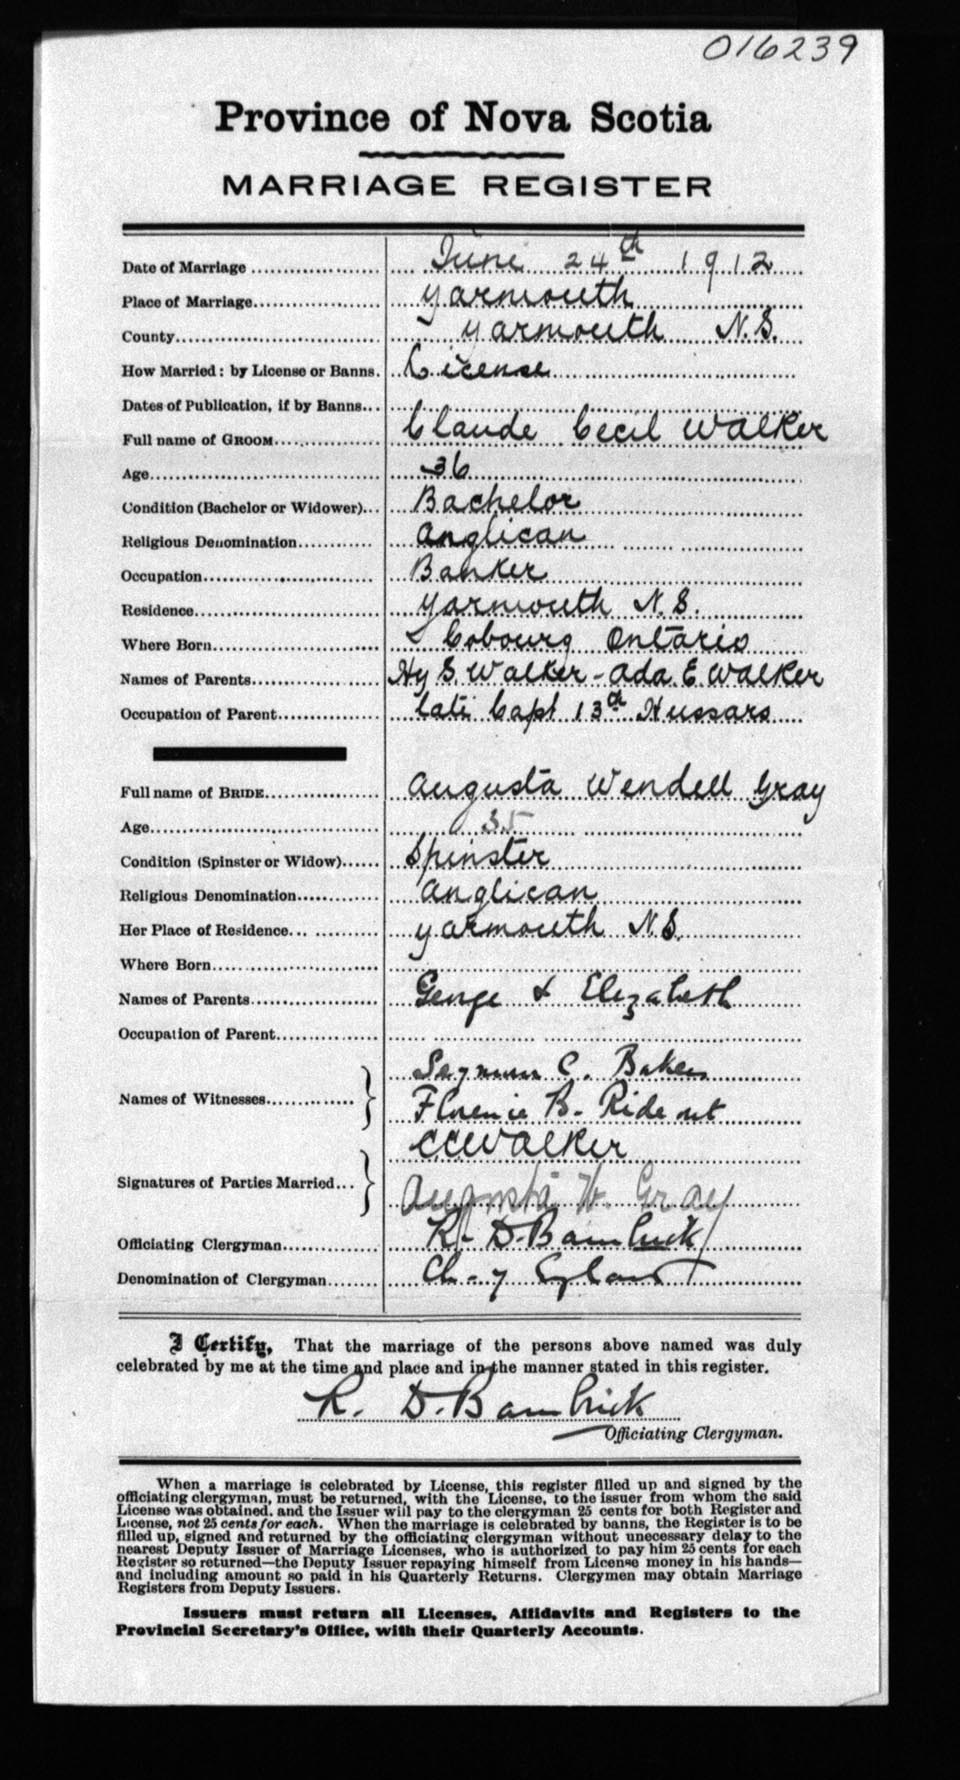 016239
Province of Nova Scotia
MARRIAGE REGISTER
Date of Marriage June 24th 1912
Place of Marriage Yarmouth
County Yarmouth N.S.
How Married: by License or Banns. License
Dates of Publication, if by Banns
Full name of GROOM Claude Cecil Walker
Age 36
Condition (Bachelor or Widower) Bachelor
Religious Denomination Anglican
Occupation Banker
Residence Yarmouth N.S.
Where Born Cobourg Ontario
Names of Parents Hy S. Walker - Ada. E. Walker
Occupation of Parent late Capt 13th Hussars
Full name of BRIDE Augusta Wendell Gray
Age 35
Condition (Spinster or Widow) Spinster
Religious Denomination Anglican
Her Place of Residence Yarmouth N.S.
Where Born
Names of Parents George & Elizabeth
Occupation of Parent
Seymour C. Baker
Names of Witnesses
Florence B. Rideout
CCWalker
Signatures of Parties Married
Augusta W. Gray
Officiating Clergyman R. D. Bambrick
Denomination of Clergyman Ch. of England
I Certify, That the marriage of the persons above named was duly
celebrated by me at the time and place and in the manner stated in this register.
R. D. Bambrick
Officiating Clergyman.
When a marriage is celebrated by License, this register filled up and signed by the
officiating clergyman, must be returned, with the License, to the issuer from whom the said
License was obtained. and the Issuer will pay to the clergyman 25 cents for both Register and
License, not 25 cents for each. When the marriage is celebrated by banns, the Register is to be
filled up, signed and returned by the officiating clergyman without unecessary delay to the
nearest Deputy Issuer of Marriage Licenses, who is authorized to pay him 25 cents for each
Register so returned—the Deputy Issuer repaying himself from License money in his hands—
and including amount so paid in his Quarterly Returns. Clergymen may obtain Marriage
Registers from Deputy Issuers.
Issuers must return all Licenses, Affidavits and Registers to the
Provincial Secretary's Office, with their Quarterly Accounts.